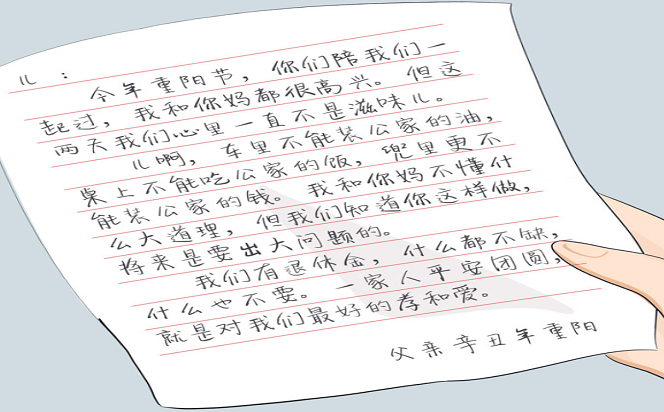 儿：
今年重阳节，你们陪我们一
起过，我和你妈都很高兴。但这
两天我们心里一直不是滋味儿。
儿啊，车里不能装公家的油，
桌上不能吃公家的饭，兜里更不
能装公家的钱。我和你妈不懂什
么大道理，但我们知道你这样做，
将来是要出大问题的。
我们有退休金，什么都不缺，
什么也不要。一家人平安团圆，
就是对我们最好的孝和爱。
父亲辛丑年重阳